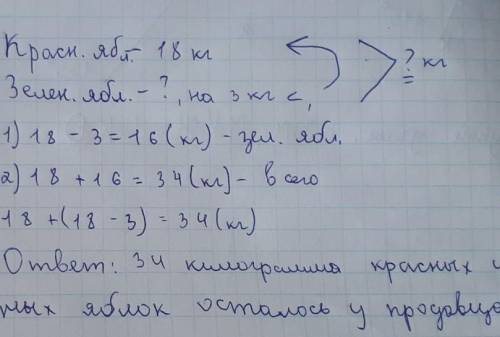 Красн. ябл. - 18 кг
? кг
Зелен. ябл. - ?, на 3 кг <,
1) 18 - 3 = 16 (кг) - зел. ябл.
2) 18 + 16 = 34 (кг) - всего
18 + (18 - 3) = 34 (кг)
Ответ: 34 килограмма красных и
ных яблок осталось у продавца